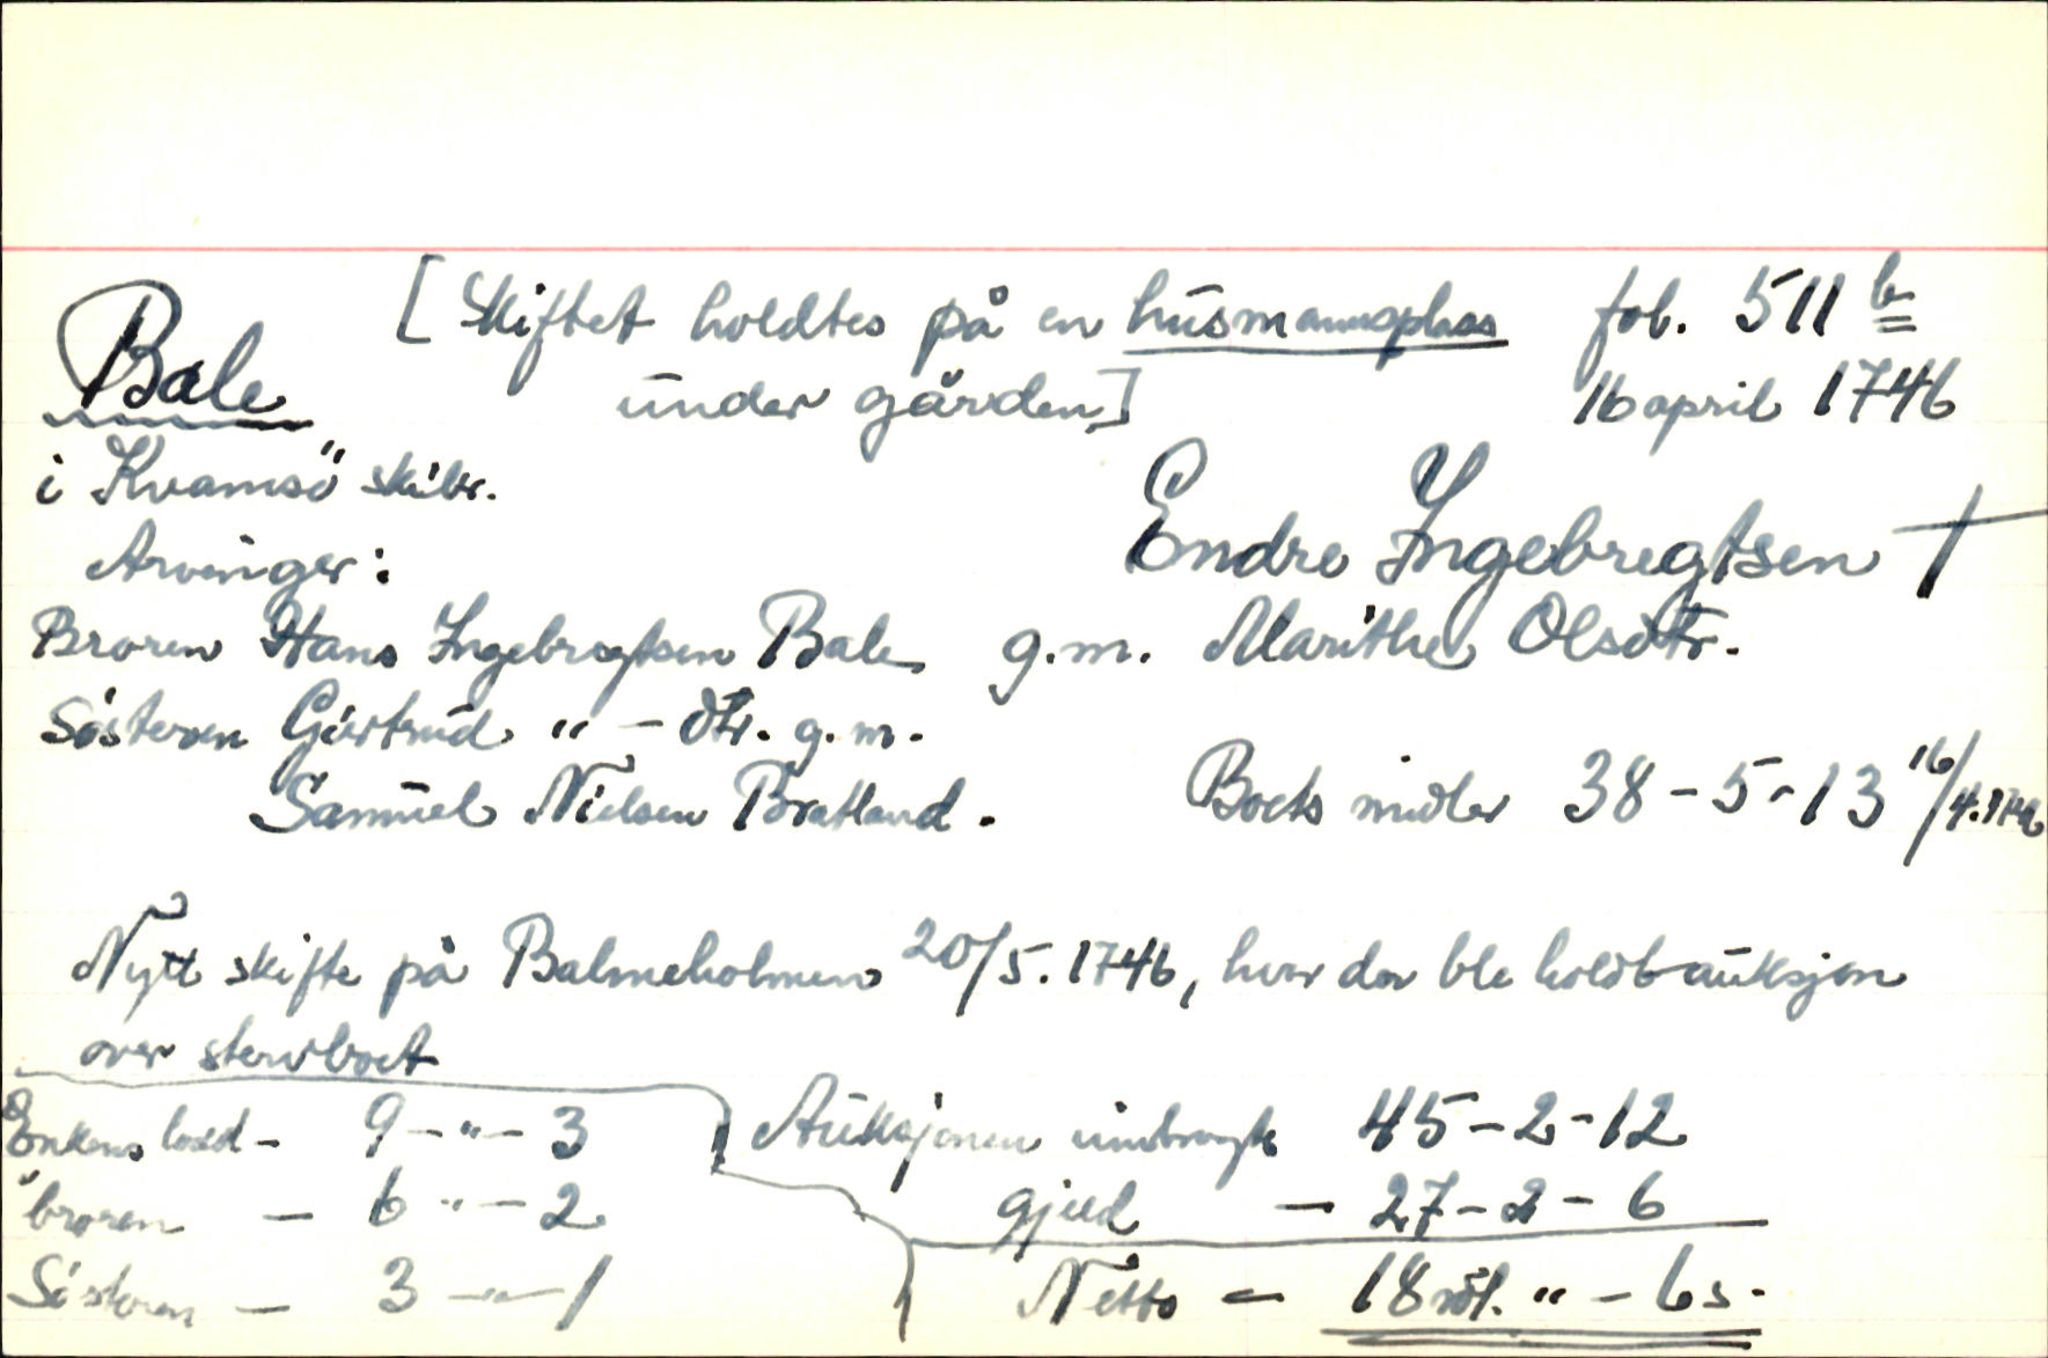 [Skiftet holdtes på en husmannsplass fol. 511 b
Bale under gården] 16 april 1746
i Kvamsö skibr.
Endre Ingebregtsen †
Arvinger:
Broren Hans Ingebregtsen Bale g.m. Marithe Olsdtr.
Søsteren Giertrud " - dtr. g.m.
Samuel Nielsen Bratland. Boets midler 38-5-13 16/4.1746
Nytt skifte på Balmeholmen 20/5.1746, hvor der ble holdt auksjon
over stervboet
Enkens lodd - 9-"-3 Auksjonen innbragte 45-2-12
broren - 6 "-2 gjeld - 27-2-6
Søsteren - 3-"-1 Netto - 18 rdl. " - 6 s.